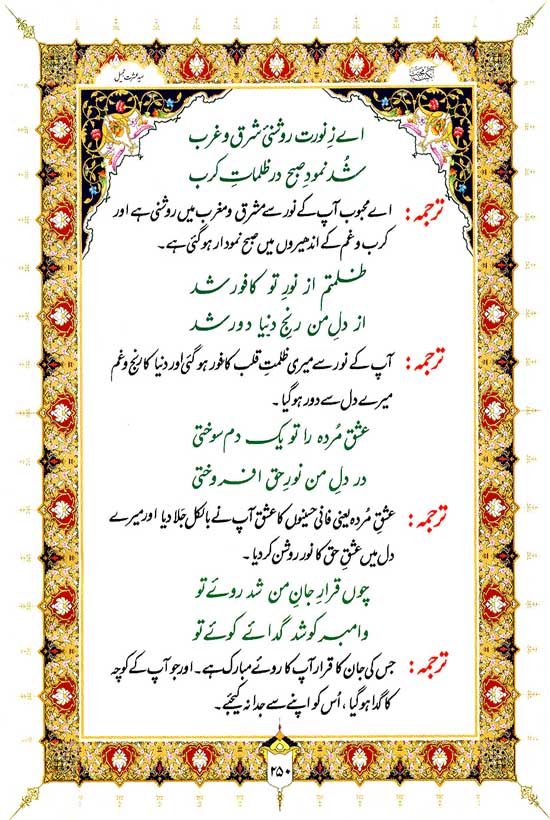 اے زِ نورت روشنئ شرق و غرب
شُد نمودِ صبح در ظلماتِ کرب
ترجمہ: اے محبوب آپ کے نور سے مشرق و مغرب میں روشنی ہے اور
کرب و غم کے اندھیروں میں صبح نمودار ہو گئی ہے۔
ظلمتم از نورِ تو کافور شد
از دلِ من رنجِ دنیا دور شد
ترجمہ: آپ کے نور سے میری ظلمتِ قلب کافور ہو گئی اور دنیا کا رنج و غم
میرے دل سے دور ہو گیا۔
عشقِ مُردہ را تو یک دم سوختی
در دلِ من نورِ حق افروختی
ترجمہ: عشقِ مُردہ یعنی فانی حسینوں کا عشق آپ نے بالکل جلا دیا اور میرے
دل میں عشقِ حق کا نور روشن کر دیا۔
چوں قرارِ جانِ من شد روئے تو
وا مبر کو شد گدائے کوئے تو
ترجمہ: جس کی جان کا قرار آپ کا روئے مبارک ہے۔ اور جو آپ کے کوچہ
کا گدا ہو گیا، اُس کو اپنے سے جدا نہ کیجئے۔
۲۵۰